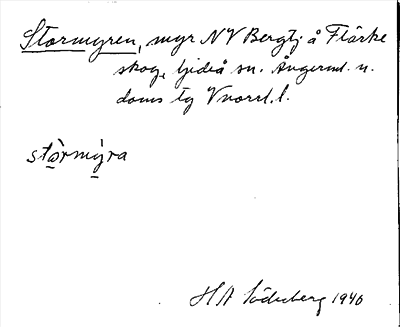 Stormyren, myr NV Bergtj. å Flärke
skog, Gideå sn. Ångerml. n.
doms tg Vnorrl. l.
stòrmýra
H A Söderberg 1940